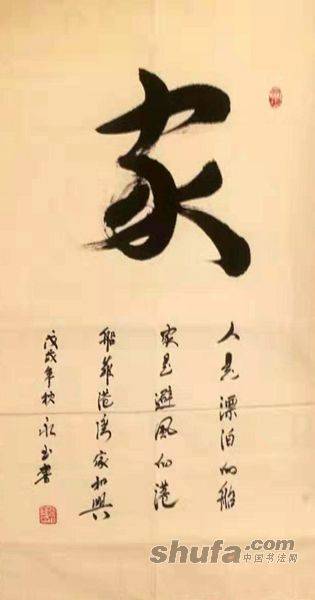 家
人是漂泊的船
家是避风的港
船靠港湾家和興
戊戌年秋 永玉書
shufa.com
中国书法网